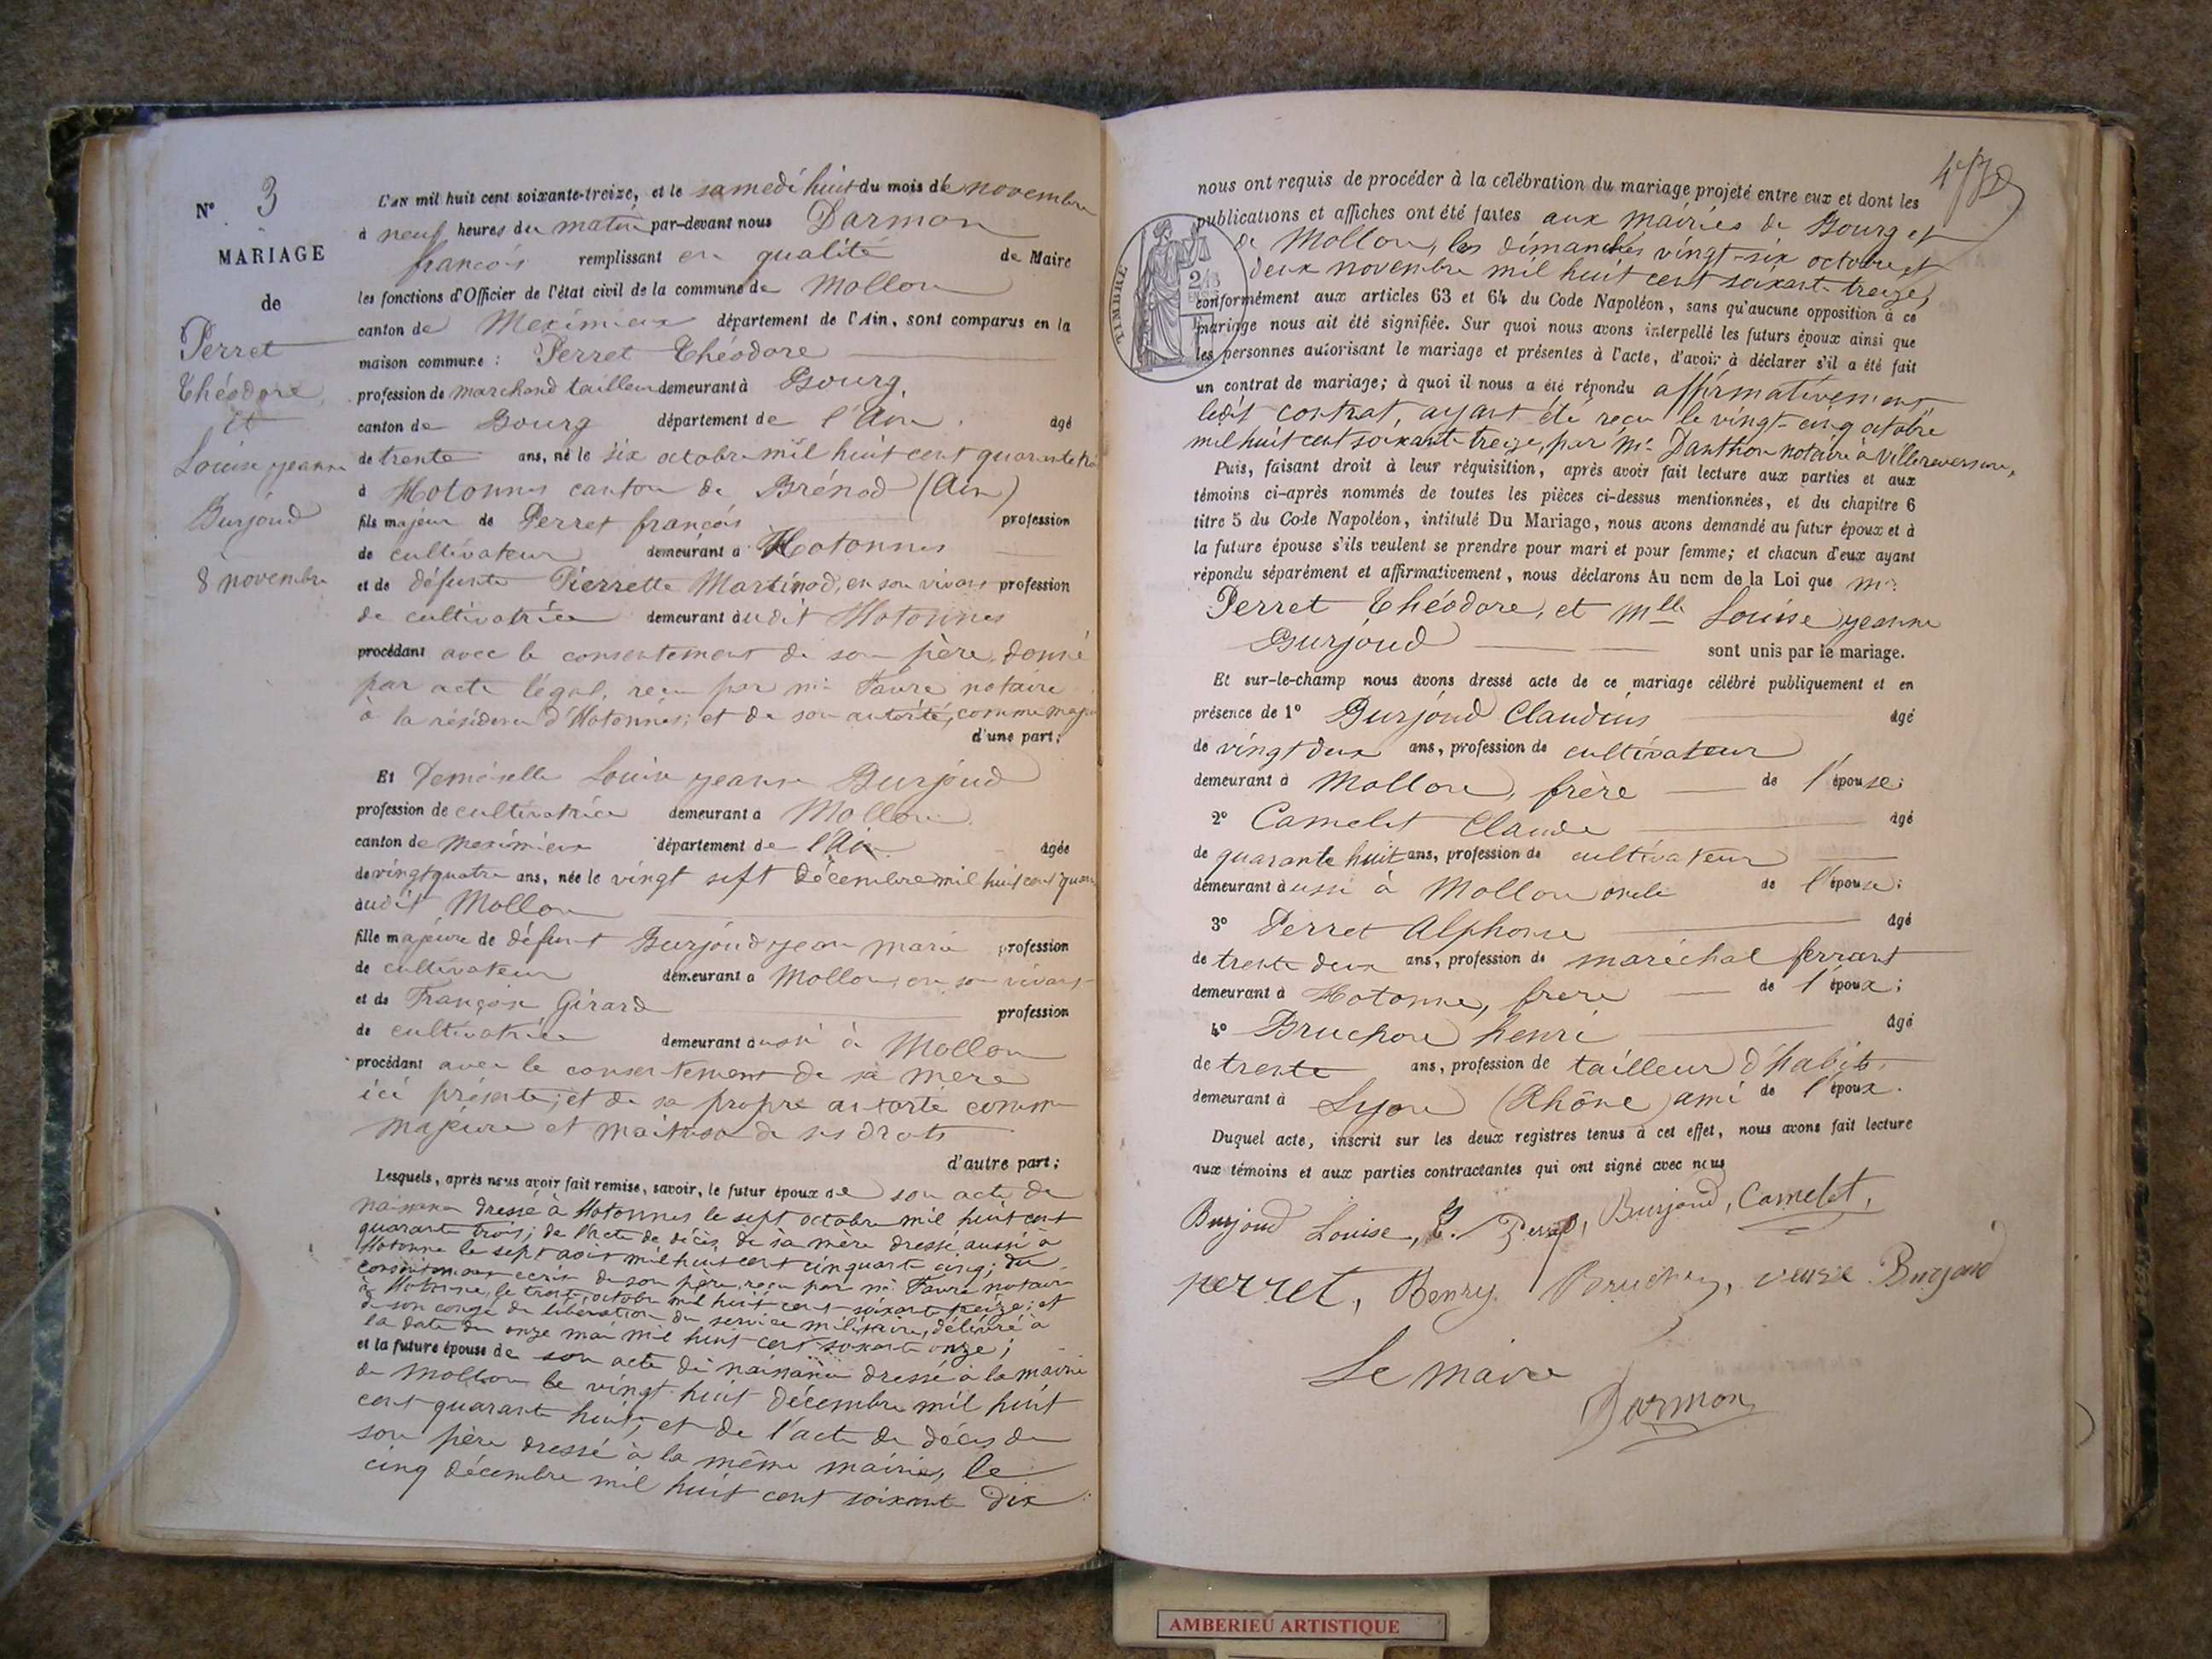 N° 3
MARIAGE
de
Perret
Théodore,
et
Louise jeanne
Burjoud
8 novembre
L'AN mil huit cent soixante-treize, et le samedi huit du mois de novembre
à neuf heures du matin par-devant nous Darmon
françois remplissant en qualité de Maire
les fonctions d'Officier de l'état civil de la commune de Mollon
canton de Meximieux département de l'Ain, sont comparus en la
maison commune : Perret Théodore
profession de marchand tailleur demeurant à Bourg,
canton de Bourg département de l'Ain. âgé
de trente ans, né le six octobre mil huit cent quarante
à Hotonnes canton de Brénod (Ain)
fils majeur de Perret françois profession
de cultivateur demeurant à Hotonnes
et de défunte Pierrette Martinod, en son vivant profession
de cultivatrice demeurant audit Hotonnes
procédant avec le consentement de son père, donné
par acte légal, reçu par me Favre notaire
à la résidence d'Hotonnes; et de son autorité, comme
d'une part;
Et Demoiselle Louise jeanne Burjoud
profession de cultivatrice demeurant à Mollon
canton de meximieux département de l'Ain âgée
de vingt quatre ans, née le vingt sept décembre mil huit cent
audit Mollon
fille majeure de défunt Burjoud jean marie profession
de cultivateur demeurant à Mollon en son vivant
et de Françoise Girard profession
de cultivatrice demeurant aussi à Mollon
procédant avec le consentement de sa mère
ici présente; et de sa propre autorité comme
majeure et maitresse de ses droits
d'autre part;
Lesquels, après nous avoir fait remise, savoir, le futur époux de son acte de
naissance dressé à Hotonnes le sept octobre mil huit cent
quarante trois; de l'acte de décès de sa mère dressé aussi à
Hotonne le sept aout mil huit cent cinquante cinq; du
consentement écrit de son père, reçu par me Favre notaire
à Hotonne, le trente octobre mil huit cent soixante treize; et
de son congé de libération du service militaire, délivré à
la date du onze mai mil huit cent soixante onze;
et la future épouse de son acte de naissance dressé à la mairie
de Mollon le vingt huit décembre mil huit
cent quarante huit, et de l'acte de décès de
son père dressé à la même mairie, le
cinq décembre mil huit cent soixante dix
nous ont requis de procéder à la célébration du mariage projeté entre eux et dont les
publications et affiches ont été faites aux mairies de Bourg et
de Mollon, les dimanches vingt-six octobre et
deux novembre mil huit cent soixante treize,
TIMBRE
conformément aux articles 63 et 64 du Code Napoléon, sans qu'aucune opposition à ce
mariage nous ait été signifiée. Sur quoi nous avons interpellé les futurs époux ainsi que
les personnes autorisant le mariage et présentes à l'acte, d'avoir à déclarer s'il a été fait
un contrat de mariage; à quoi il nous a été répondu affirmativement
ledit contrat, ayant été reçu le vingt-cinq octobre
mil huit cent soixante treize, par Me Danthon notaire à Villereversure,
Puis, faisant droit à leur réquisition, après avoir fait lecture aux parties et aux
témoins ci-après nommés de toutes les pièces ci-dessus mentionnées, et du chapitre 6
titre 5 du Code Napoléon, intitulé Du Mariage, nous avons demandé au futur époux et à
la future épouse s'ils veulent se prendre pour mari et pour femme; et chacun d'eux ayant
répondu séparément et affirmativement, nous déclarons Au nom de la Loi que mr
Perret Théodore, et Mlle Louise jeanne
Burjoud sont unis par le mariage.
Et sur-le-champ nous avons dressé acte de ce mariage célébré publiquement et en
présence de 1° Burjoud Claudius âgé
de vingt deux ans, profession de cultivateur
demeurant à Mollon, frère de l'épouse;
2° Camelet Claude âgé
de quarante huit ans, profession de cultivateur
demeurant aussi à Mollon oncle de l'épouse;
3° Perret Alphonse âgé
de trente deux ans, profession de maréchal ferrant
demeurant à Hotonne, frère de l'époux;
4° Bruchon henri âgé
de trente ans, profession de tailleur d'habits,
demeurant à Lyon (Rhône) ami de l'époux.
Duquel acte, inscrit sur les deux registres tenus à cet effet, nous avons fait lecture
aux témoins et aux parties contractantes qui ont signé avec nous
Burjoud Louise, T. Perret, Burjoud, Camelet,
perret, Henry Bruchon, veuve Burjoud
Le maire
Darmon
AMBERIEU ARTISTIQUE